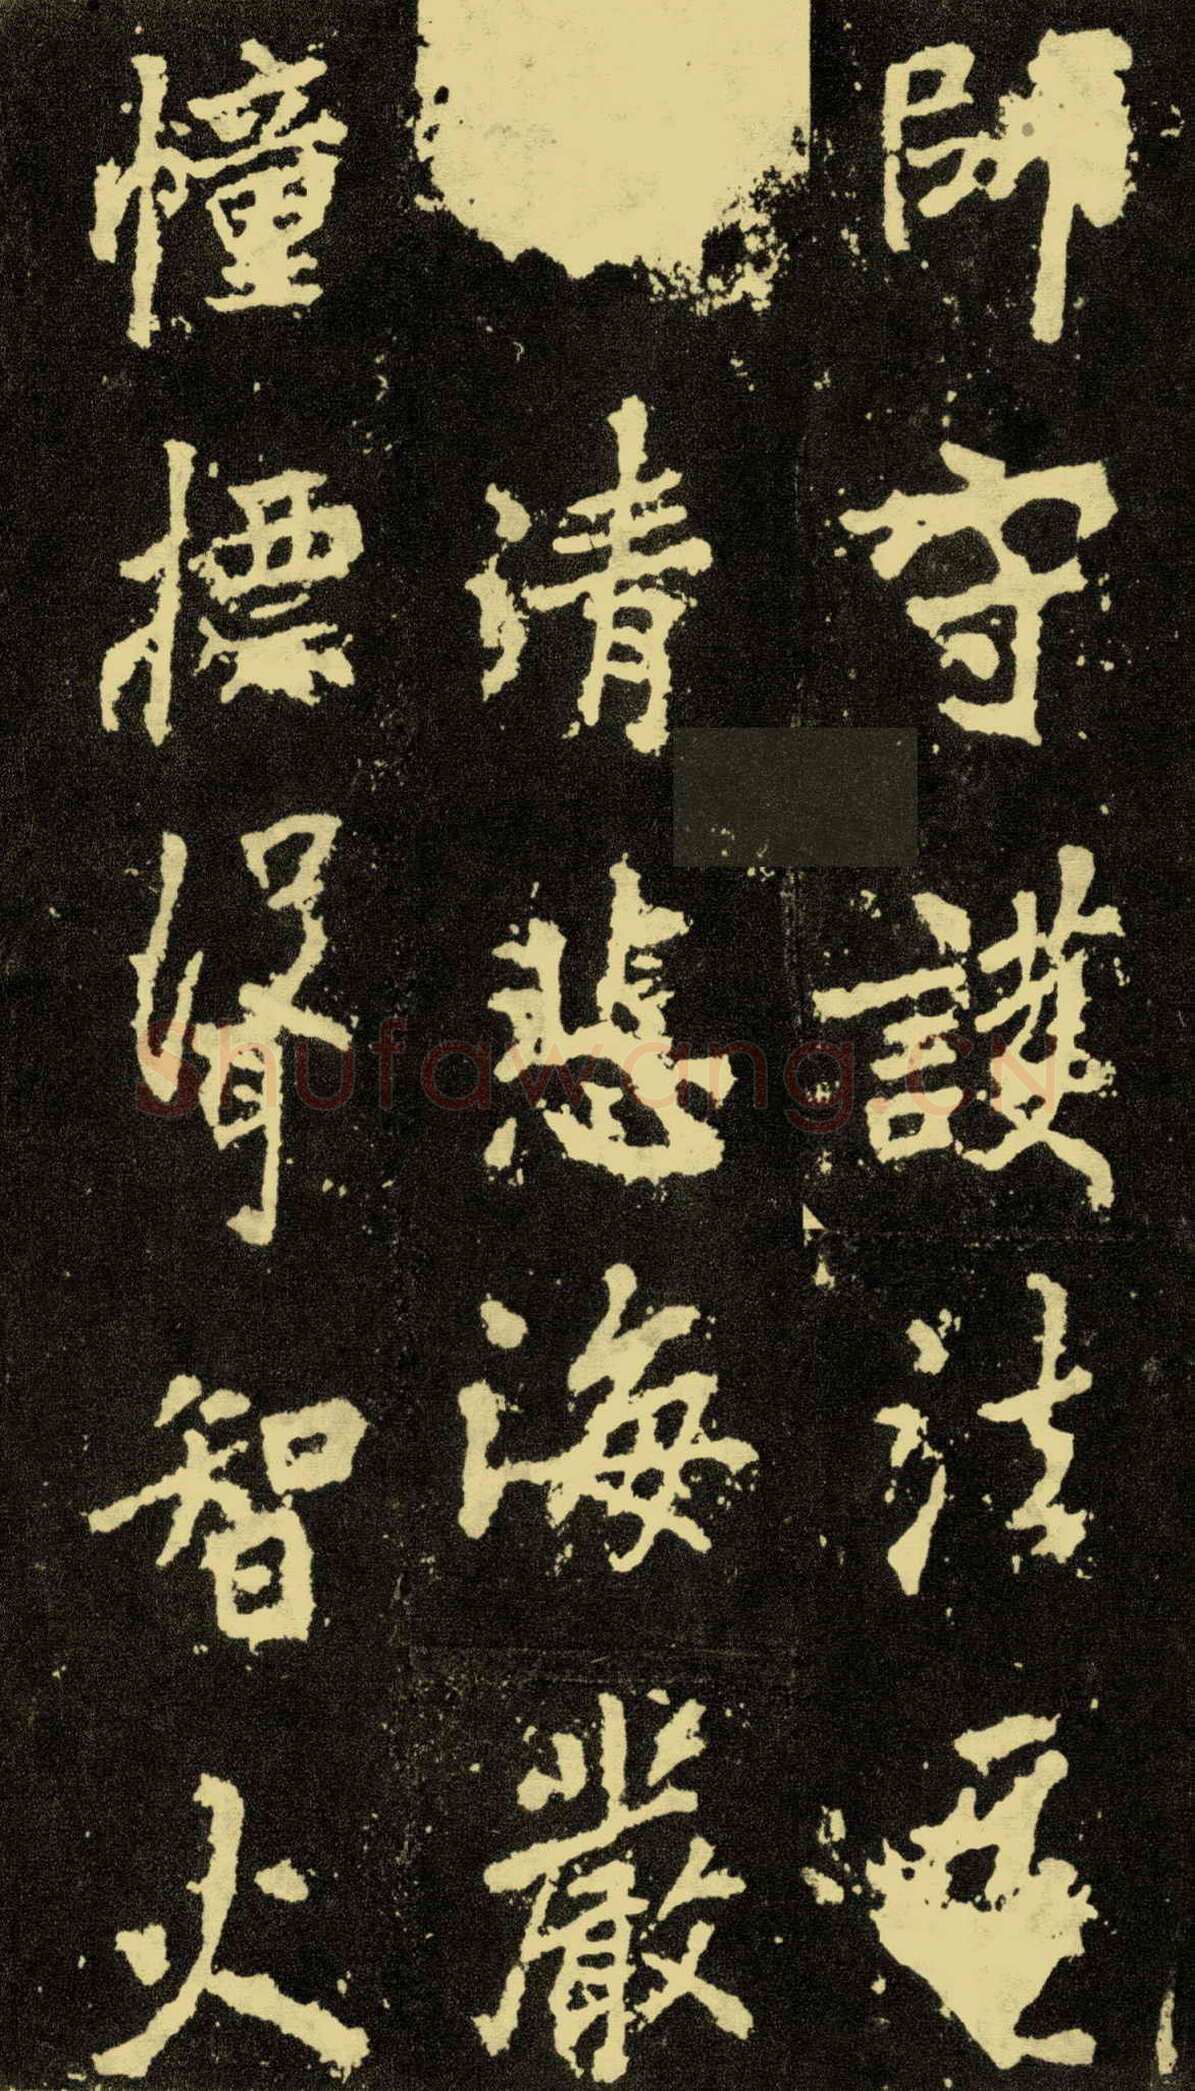 師守護法
清悲海嚴
憧摽智火
Shufawang.CN